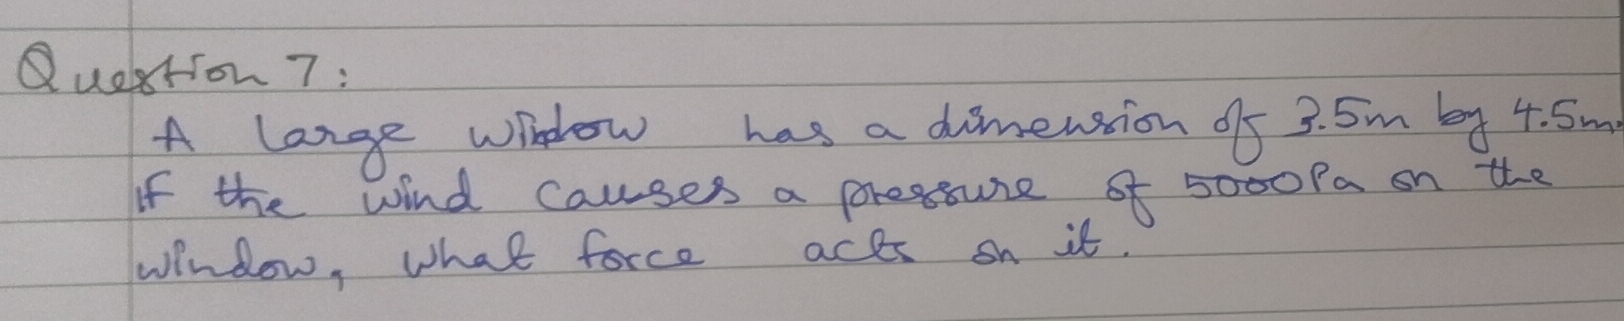 Question 7:
A large window has a dimension of 3.5m by 4.5m.
if the wind causes a pressure of 5000Pa on the
window, what force acts on it.